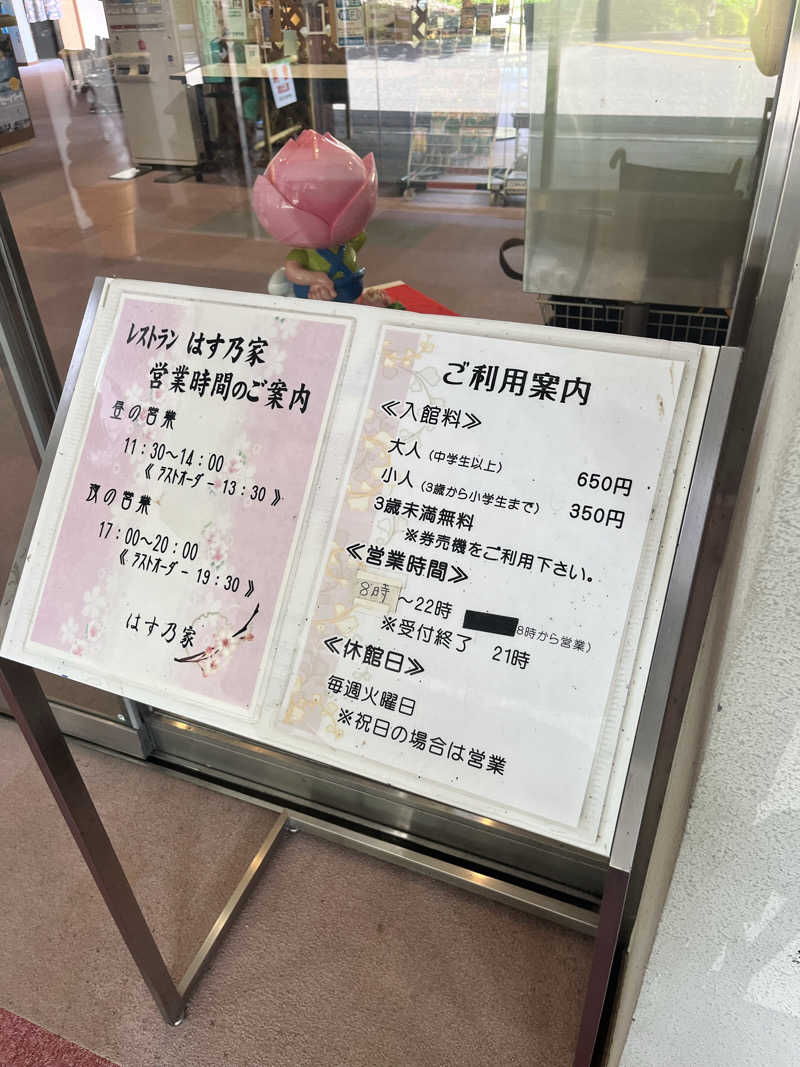 レストラン はす乃家
営業時間のご案内
昼の営業
11：30～14：00
《 ラストオーダー 13：30 》
夜の営業
17：00～20：00
《 ラストオーダー 19：30 》
はす乃家
ご利用案内
≪入館料≫
大人（中学生以上） 650円
小人（3歳から小学生まで） 350円
3歳未満無料
※券売機をご利用下さい。
≪営業時間≫
8時～22時 8時から営業）
※受付終了 21時
≪休館日≫
毎週火曜日
※祝日の場合は営業